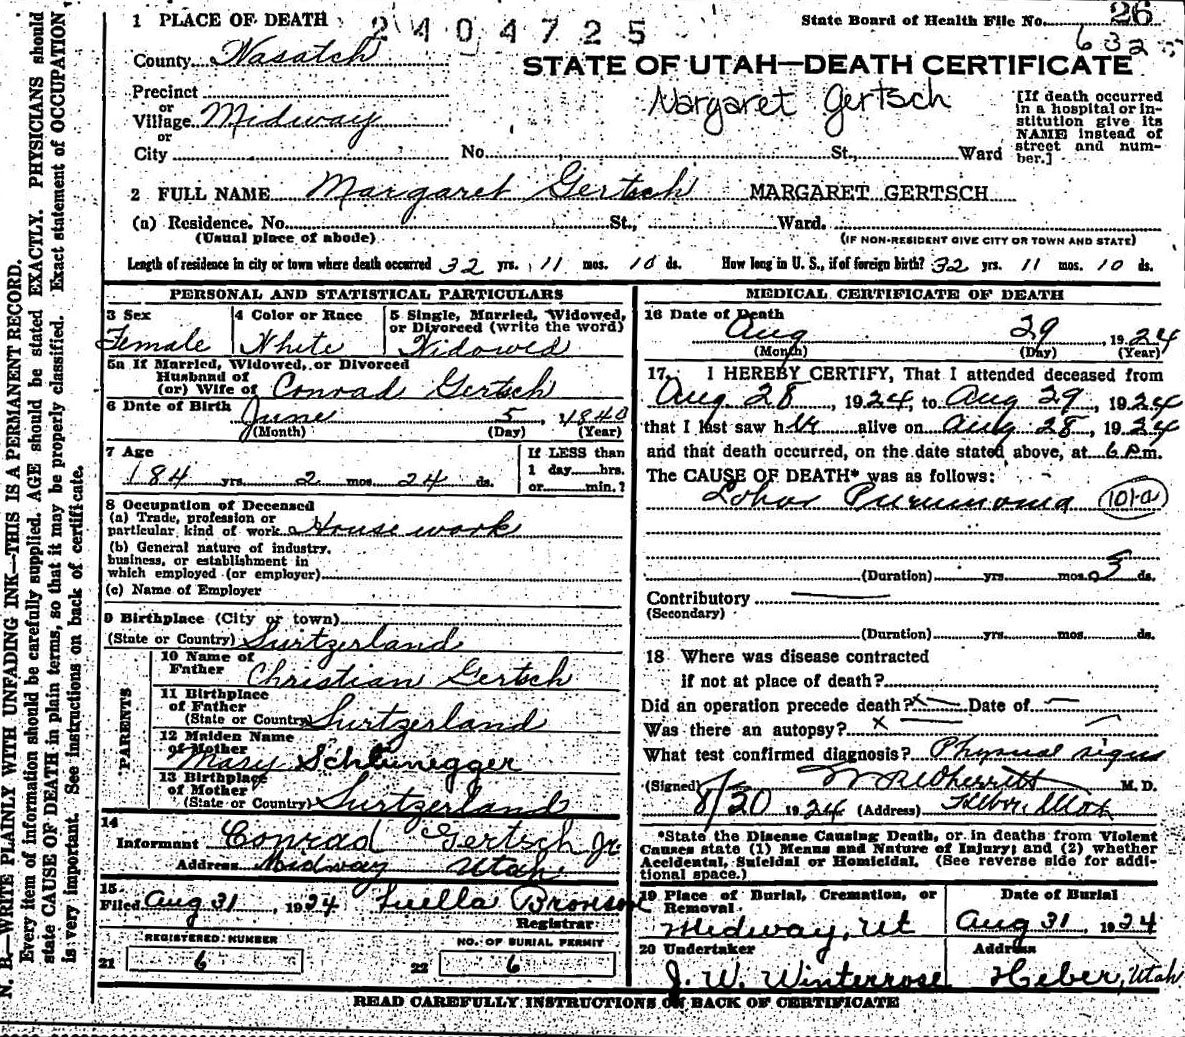 1 PLACE OF DEATH
2404725
State Board of Health File No. 26
632
County Wasatch
STATE OF UTAH—DEATH CERTIFICATE
Precinct
or
Village Midway
or
City No. St., Ward
Margaret Gertsch
[If death occurred in a hospital or institution give its NAME instead of street and number.]
2 FULL NAME Margaret Gertsch MARGARET GERTSCH
(a) Residence. No. St., Ward.
(Usual place of abode) (IF NON-RESIDENT GIVE CITY OR TOWN AND STATE)
Length of residence in city or town where death occurred 32 yrs. 11 mos. 10 ds. How long in U. S., if of foreign birth? 32 yrs. 11 mos. 10 ds.
PERSONAL AND STATISTICAL PARTICULARS
3 Sex
Female
4 Color or Race
White
5 Single, Married, Widowed, or Divorced (write the word)
Widowed
5a If Married, Widowed, or Divorced
Husband of
(or) Wife of Conrad Gertsch
6 Date of Birth June 5, 1840
(Month) (Day) (Year)
7 Age
84 yrs. 2 mos. 24 ds.
If LESS than
1 day hrs.
or min.?
8 Occupation of Deceased
(a) Trade, profession or
particular kind of work House work
(b) General nature of industry,
business, or establishment in
which employed (or employer)
(c) Name of Employer
9 Birthplace (City or town)
(State or Country) Surtzerland
PARENTS
10 Name of
Father Christian Gertsch
11 Birthplace
of Father
(State or Country) Surtzerland
12 Maiden Name
of Mother
Mary Scheunegger
13 Birthplace
of Mother
(State or Country) Surtzerland
14
Informant Conrad Gertsch Jr.
Address Midway Utah
15
Filed Aug 31, 1924 Luella Bronson
Registrar
REGISTERED NUMBER
21 6
NO. OF BURIAL PERMIT
22 6
MEDICAL CERTIFICATE OF DEATH
16 Date of Death
Aug 29 1924
(Month) (Day) (Year)
17. I HEREBY CERTIFY, That I attended deceased from
Aug 28, 1924, to Aug 29, 1924
that I last saw her alive on Aug 28, 1924
and that death occurred, on the date stated above, at 6 P.m.
The CAUSE OF DEATH* was as follows:
Lobar Pneumonia 101-a
(Duration) yrs. mos. 5 ds.
Contributory
(Secondary)
(Duration) yrs. mos. ds.
18 Where was disease contracted
if not at place of death?
Did an operation precede death? x Date of
Was there an autopsy? x
What test confirmed diagnosis? Physical signs
(Signed) M. D.
8/30 1924 (Address) Heber, Utah
*State the Disease Causing Death, or in deaths from Violent
Causes state (1) Means and Nature of Injury; and (2) whether
Accidental, Suicidal or Homicidal. (See reverse side for addi-
tional space.)
19 Place of Burial, Cremation, or
Removal
Midway, Ut
Date of Burial
Aug 31, 1924
20 Undertaker
J. W. Winterrose
Address
Heber, Utah
READ CAREFULLY INSTRUCTIONS ON BACK OF CERTIFICATE
N. B.—WRITE PLAINLY WITH UNFADING INK—THIS IS A PERMANENT RECORD.
Every item of information should be carefully supplied. AGE should be stated EXACTLY. PHYSICIANS should
state CAUSE OF DEATH in plain terms, so that it may be properly classified. Exact statement of OCCUPATION
is very important. See instructions on back of certificate.